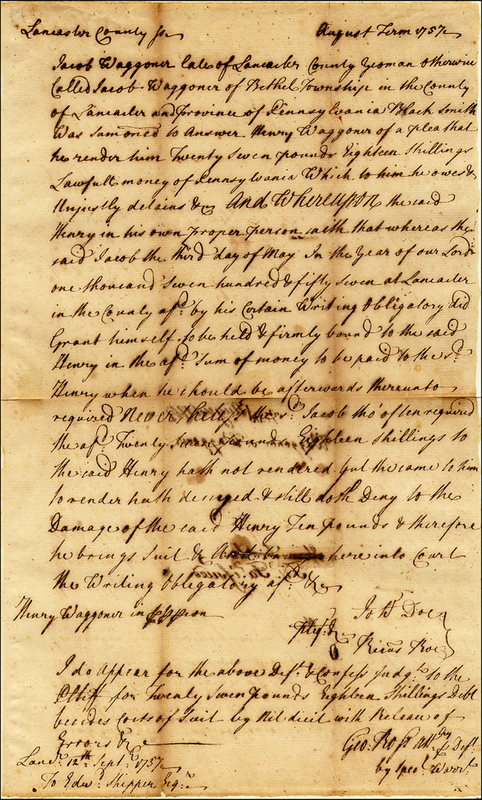 Lancaster County ss August Term 1757
Jacob Waggoner late of Lancaster County Yeoman otherwise
Called Jacob Waggoner of Bethel Township in the County
of Lancaster and Province of Pennsylvania Black Smith
Was Sumoned to Answer Henry Waggoner of a plea that
he render him Twenty Seven pounds Eighteen Shillings
Lawfull money of Pennsylvania Which to him he owes &
Unjustly detains &c And Whereupon the said
Henry in his own proper person saith that whereas the
said Jacob the third day of May In the Year of our Lord
one thousand Seven hundred & fifty Seven at Lancaster
in the County afd. by his Certain Writing Obligatory did
Grant himself to be held & firmly bound to the said
Henry in the afd. Sum of money to be paid to the sd.
Henry when he should be afterwards thereunto
required Never the sd. Jacob tho' often required
the afd. Twenty pounds Eighteen shillings to
the said Henry hath not rendered but the same to him
to render hath denyed & still doth Deny to the
Damage of the said Henry Ten pounds & therefore
he brings Suit & here into Court
the Writing Obligatory afd. &c
Henry Waggoner in person
Jo Doe
Ricus Roe
I do Appear for the above Deft. & Confess Judgt. to the
Pltiff for Twenty Seven pounds Eighteen Shillings Debt
besides Costs of Suit by Nil dicit with Release of
Errors &c
Geo. Ross Atty. Deft.
Lancr. 12th. Septr. 1757 by specl. Warrt.
To Edwd. Shippen Esqr.